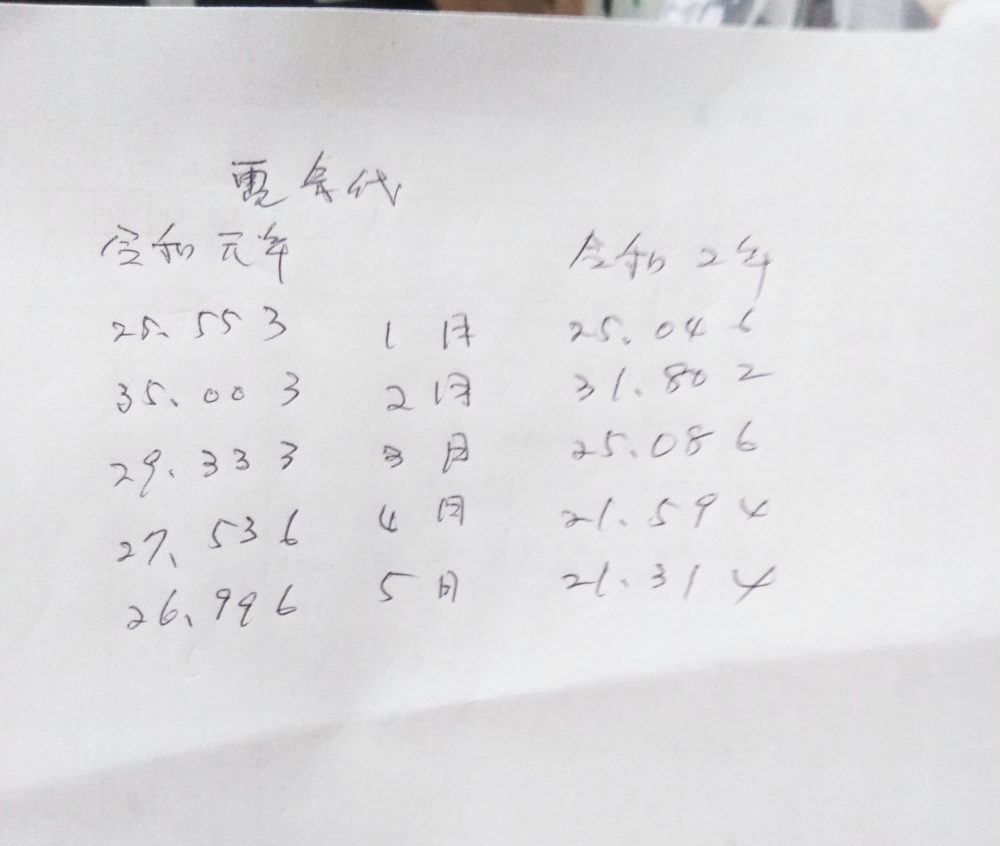 電気代
令和元年 令和2年
25.553 1月 25.046
35.003 2月 31.802
29.333 3月 25.086
27.536 4月 21.594
26.996 5月 21.314